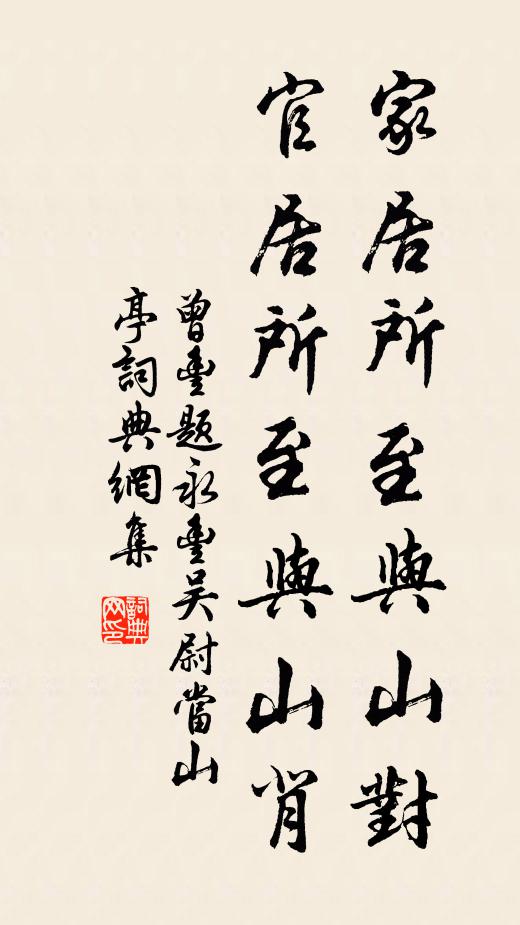 家居所至與山對
官居所至與山背
曾豐題永豐吳尉當山
亭詞典網集
詞典
网印